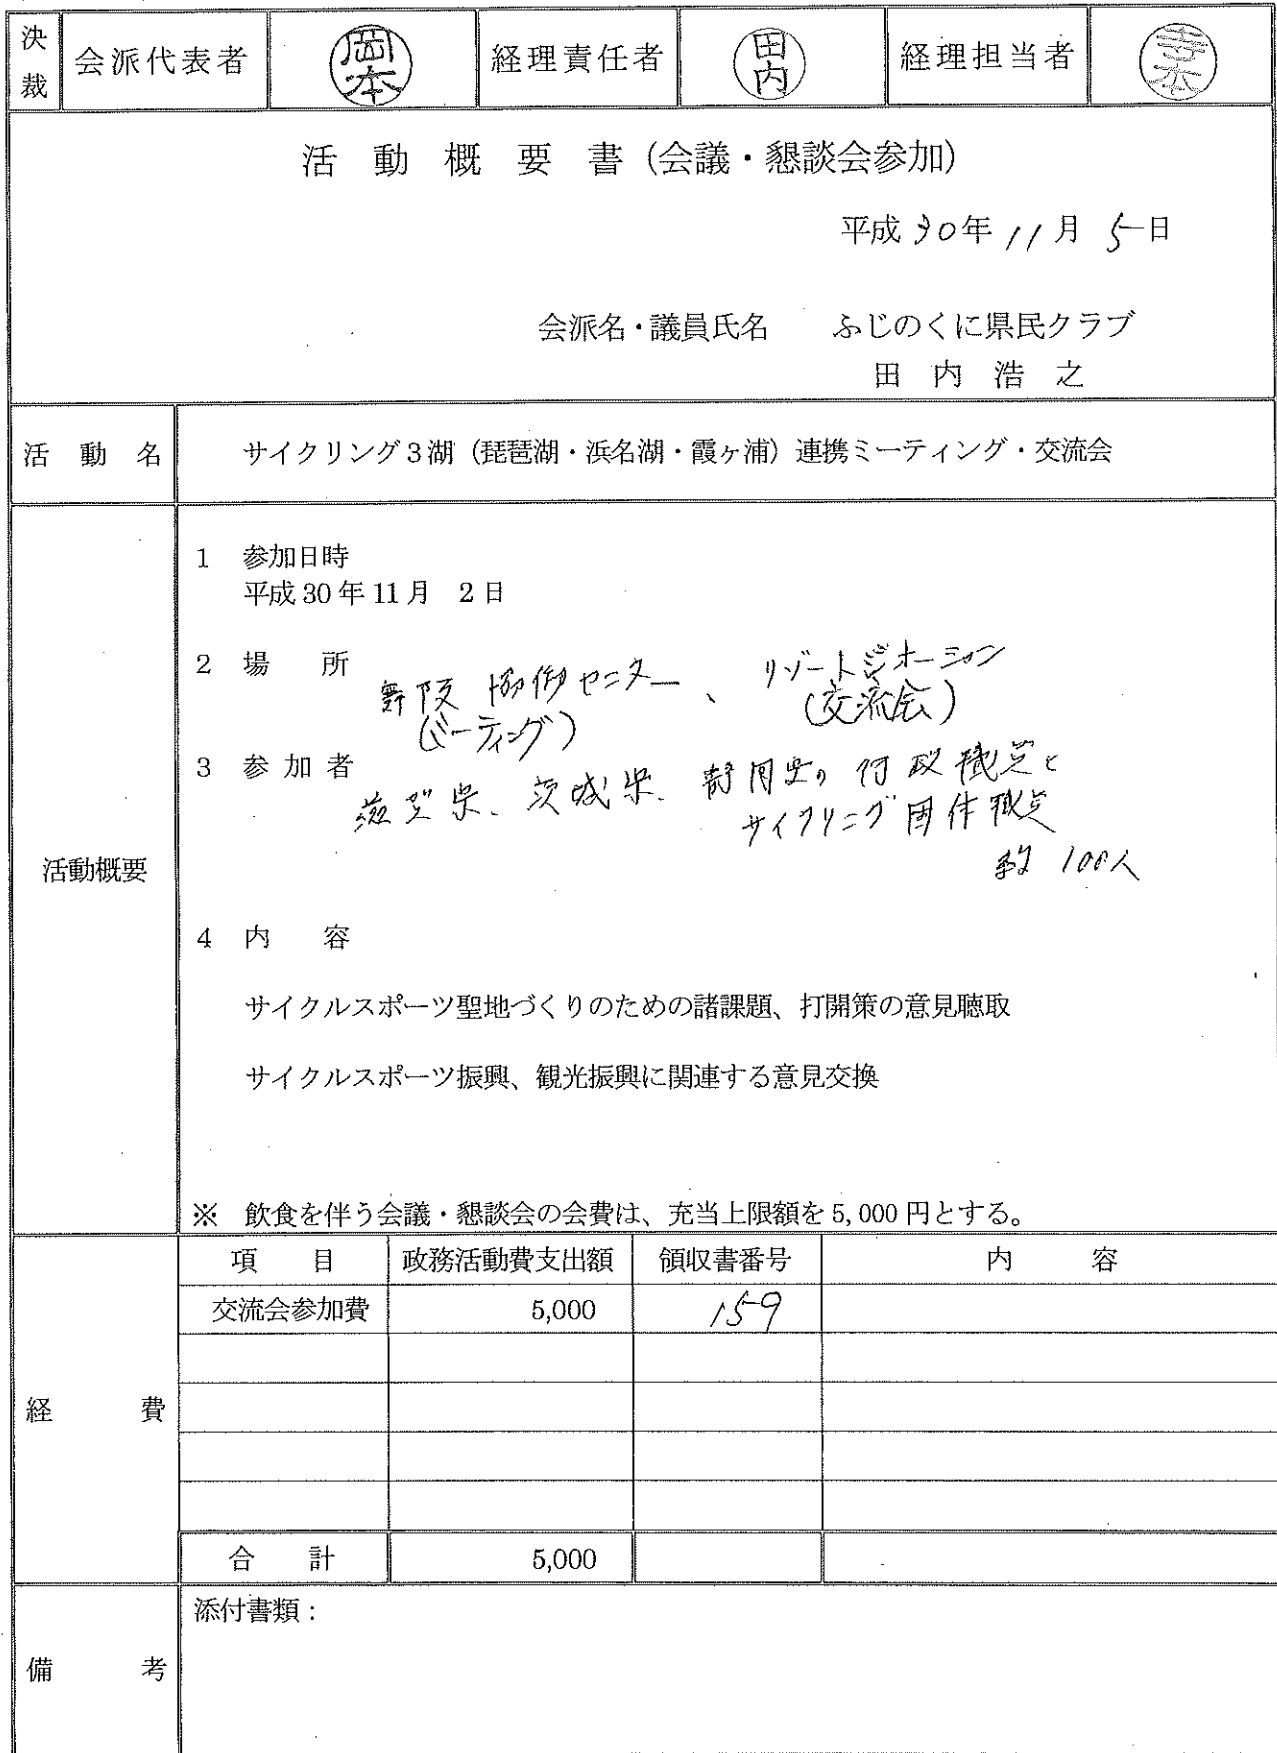 決裁 会派代表者 岡本 経理責任者 田内 経理担当者 寺本
活動概要書(会議・懇談会参加)
平成30年11月5日
会派名・議員氏名 ふじのくに県民クラブ
田内浩之
活動名 サイクリング3湖(琵琶湖・浜名湖・霞ヶ浦)連携ミーティング・交流会
活動概要
1 参加日時
平成30年11月 2日
2 場所
舞阪協働センター、リゾートジオーシャン
(ミーティング) (交流会)
3 参加者
滋賀県、茨城県、静岡県の行政職員と
サイクリング団体職員
約100人
4 内容
サイクルスポーツ聖地づくりのための諸課題、打開策の意見聴取
サイクルスポーツ振興、観光振興に関連する意見交換
※ 飲食を伴う会議・懇談会の会費は、充当上限額を5,000円とする。
経費
項目 政務活動費支出額 領収書番号 内容
交流会参加費 5,000 159
合計 5,000
備考
添付書類: